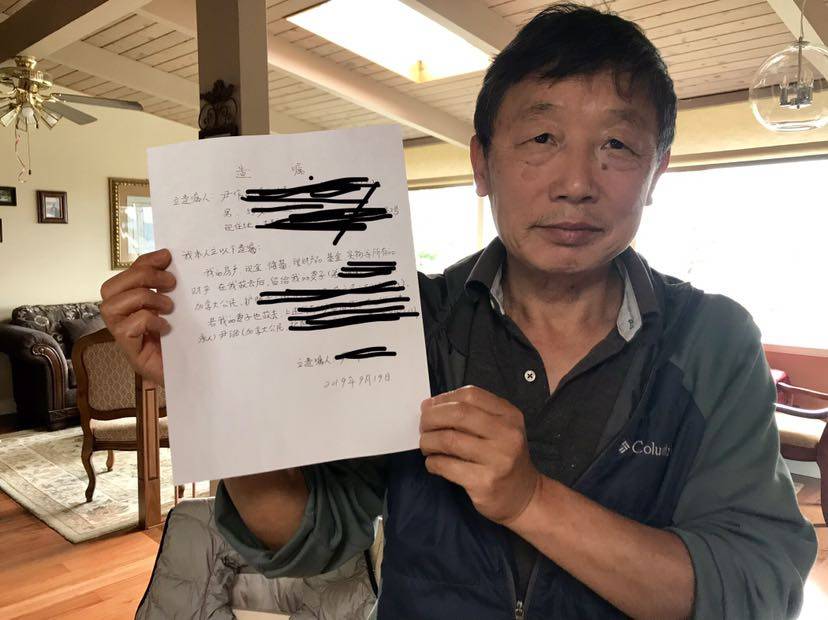 遗 嘱
立遗嘱人: 尹
男,
现住址
我本人立以下遗嘱:
我的房产, 现金, 储蓄, 理财产品, 基金, 实物等所有的
财产, 在我故去后, 留给我的妻子(
加拿大公民, 护
若我的妻子也故去, 上
承人) 尹 (加拿大公民
立遗嘱人
2019年9月19日
Columbia